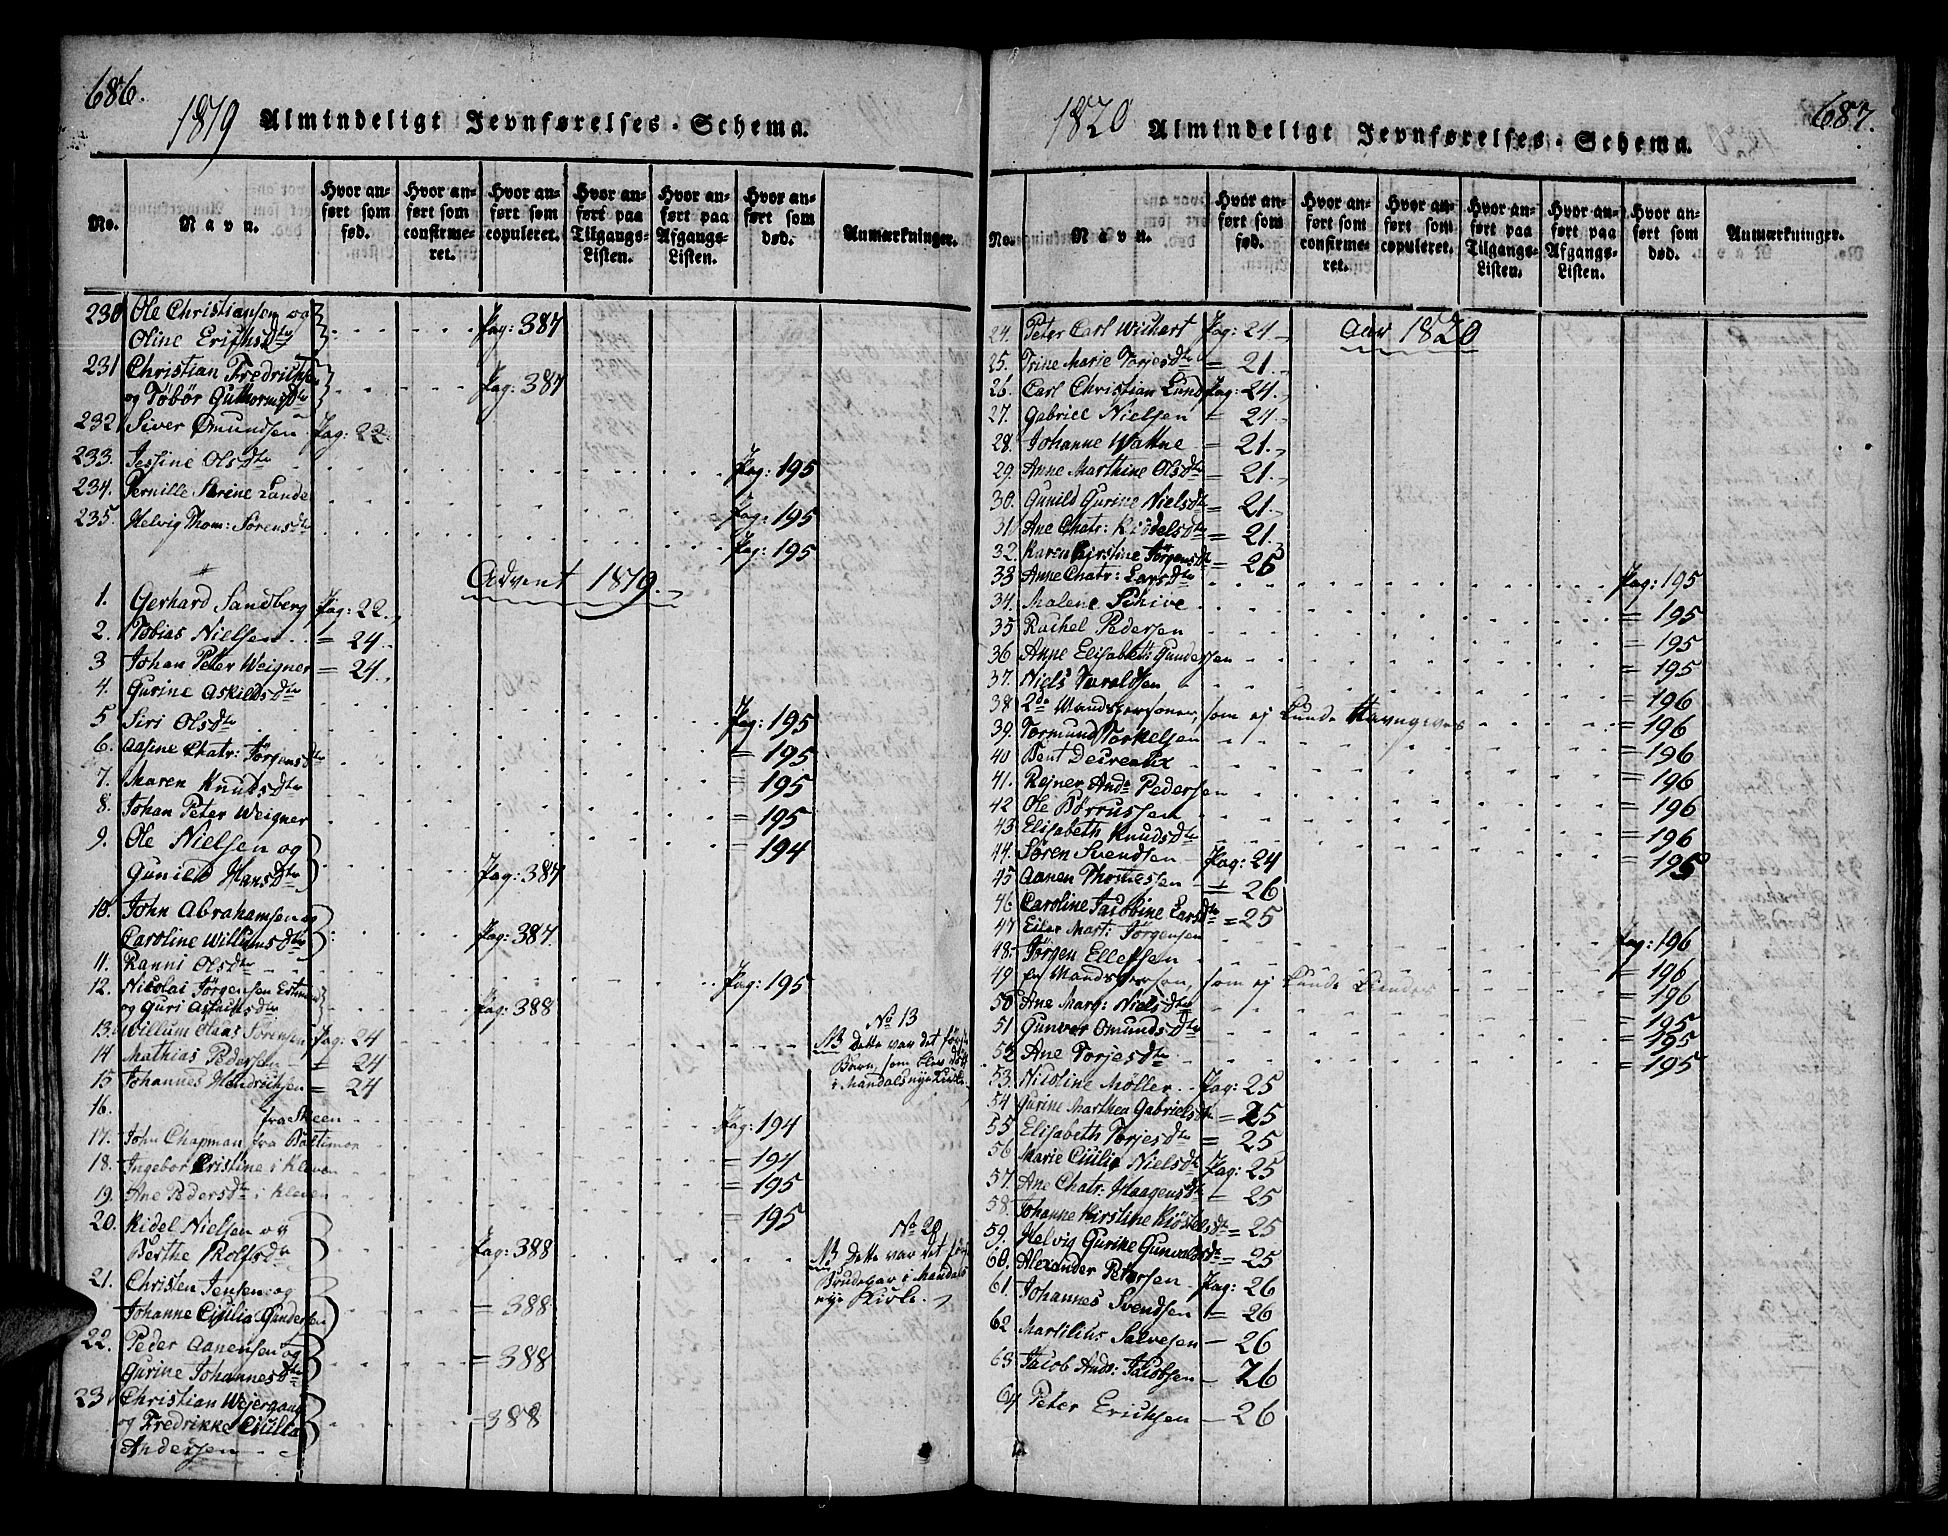 686.
1819 Almindeligt Jevnførelses-Schema.
No.
Navn.
Hvor anført som fød.
Hvor anført som confirmeret.
Hvor anført som copuleret.
Hvor anført paa Tilgangs-Listen.
Hvor anført paa Afgangs-Listen.
Hvor anført som død.
Anmærkninger.
230 Ole Christiansen og
Oline Erichsdtr Pag: 387
231 Christian Fredrichsen
og Tobør Guthormsdtr Pag: 387
232 Siver Omundsen Pag: 22
233. Jessine Olsdtr Pag: 195
234. Pernille Serine Lande Pag: 195
235. Helvig Thom: Sørensdtr Pag: 195
Advent 1819.
1. Gerhard Sandberg Pag: 22
2. Tobias Nielsen = 24
3 Johan Peter Weigner = 24
4. Gurine Askildsdtr Pag: 195
5 Siri Olsdtr = 195
6. Aasine Chatr: Jørgensdtr = 195
7. Maren Knudsdtr = 195
8. Johan Peter Weigner = 194
9. Ole Nielsen og
Gunild Hansdtr Pag: 387
10. John Abrahamsen og
Caroline Willumsdtr Pag: 387
11. Ranni Olsdtr Pag: 195
12. Nicolai Jørgensen
og Guri Pag: 388
13. Willum Claus Sørensen Pag: 24
No 13
NB Dette var det første
Barn, som blev døbt
i Mandals nye Kirke
14 Mathias Pedersen = 24
15 Johannes Hendrichsen = 24
16.
fra Skeen Pag: 194
17. John Chapman fra Baltimor = 194
18. Ingebor Cristine i Kleven = 195
19. Ane Pedersdtr i Kleven = 195
20. Kidel Nielsen og
Berthe Rolfsdtr Pag: 388
No 20
NB Dette var det første
Brudepar i Mandals
nye Kirke.
21. Christen Jensen og
Johanne Ciulia Gundersen = 388
22. Peder Aanensen og
Gurine Johannesdtr = 388
23 Christian Wejergang
og Fredrikke Ciulia
Andersen 388
687.
1820 Almindeligt Jevnførelses-Schema.
No.
Navn.
Hvor anført som fød.
Hvor anført som confirmeret.
Hvor anført som copuleret.
Hvor anført paa Tilgangs-Listen.
Hvor anført paa Afgangs-Listen.
Hvor anført som død.
Anmærkninger.
Aar 1820
24. Peter Carl Wichert Pag: 24
25. Trine Marie Torjesdtr = 21
26. Carl Christian Lund Pag: 24
27. Gabriel Nielsen = 24
28. Johanne Wattne = 21
29. Anne Marthine Olsdtr = 21
30. Gunild Gurine Nielsdtr = 21
31. Ane Chatr: Kiødelsdtr = 21
32 Karen Cirstine Jørgensdtr = 25
33 Anne Chatr: Larsdtr Pag: 195
34. Malene Schive = 195
35 Rachel Pedersen = 195
36 Anne Elisabeth: Gundersen = 195
37. Niels Taraldsen = 196
38 2de Mandspersoner, som ej kunde Navngives = 196
39. Tormund Torkelsen = 196
40 Bent Decreaux = 196
41. Rejner Ands Pedersen = 196
42 Ole Børrussen = 196
43 Elisabeth Knudsdtr = 195
44. Søren Svendsen Pag: 24
45 Aanen Thomesen = 26
46 Caroline Jacobine Larsdtr = 25
47 Eiler Mart: Jørgensen Pag: 196
48. Jørgen Ellefsen = 196
49 en Mandsperson, som ej kunde kiendes = 196
50 Ane Marg: Nielsdtr = 195
51 Gunver Omundsdtr = 195
52 Ane Torjesdtr = 195
53. Nicoline Møller Pag: 25
54 Gurine Marthea Gabrielsdtr = 25
55 Elisabeth Torjesdtr = 25
56 Marie Ciulia Nielsdtr Pag: 25
57. Ane Chatr: Haagensdtr = 25
58. Johanne Kirstine Kiøstelsdtr = 25
59. Helvig Gurine Gunvaldsdtr = 25
60. Alexander Petersen Pag: 26
61. Johannes Svendsen = 26
62 Martilius Salvesen — 26
63 Jacob Ands: Jacobsen — 26
64 Peter Erichsen — 26